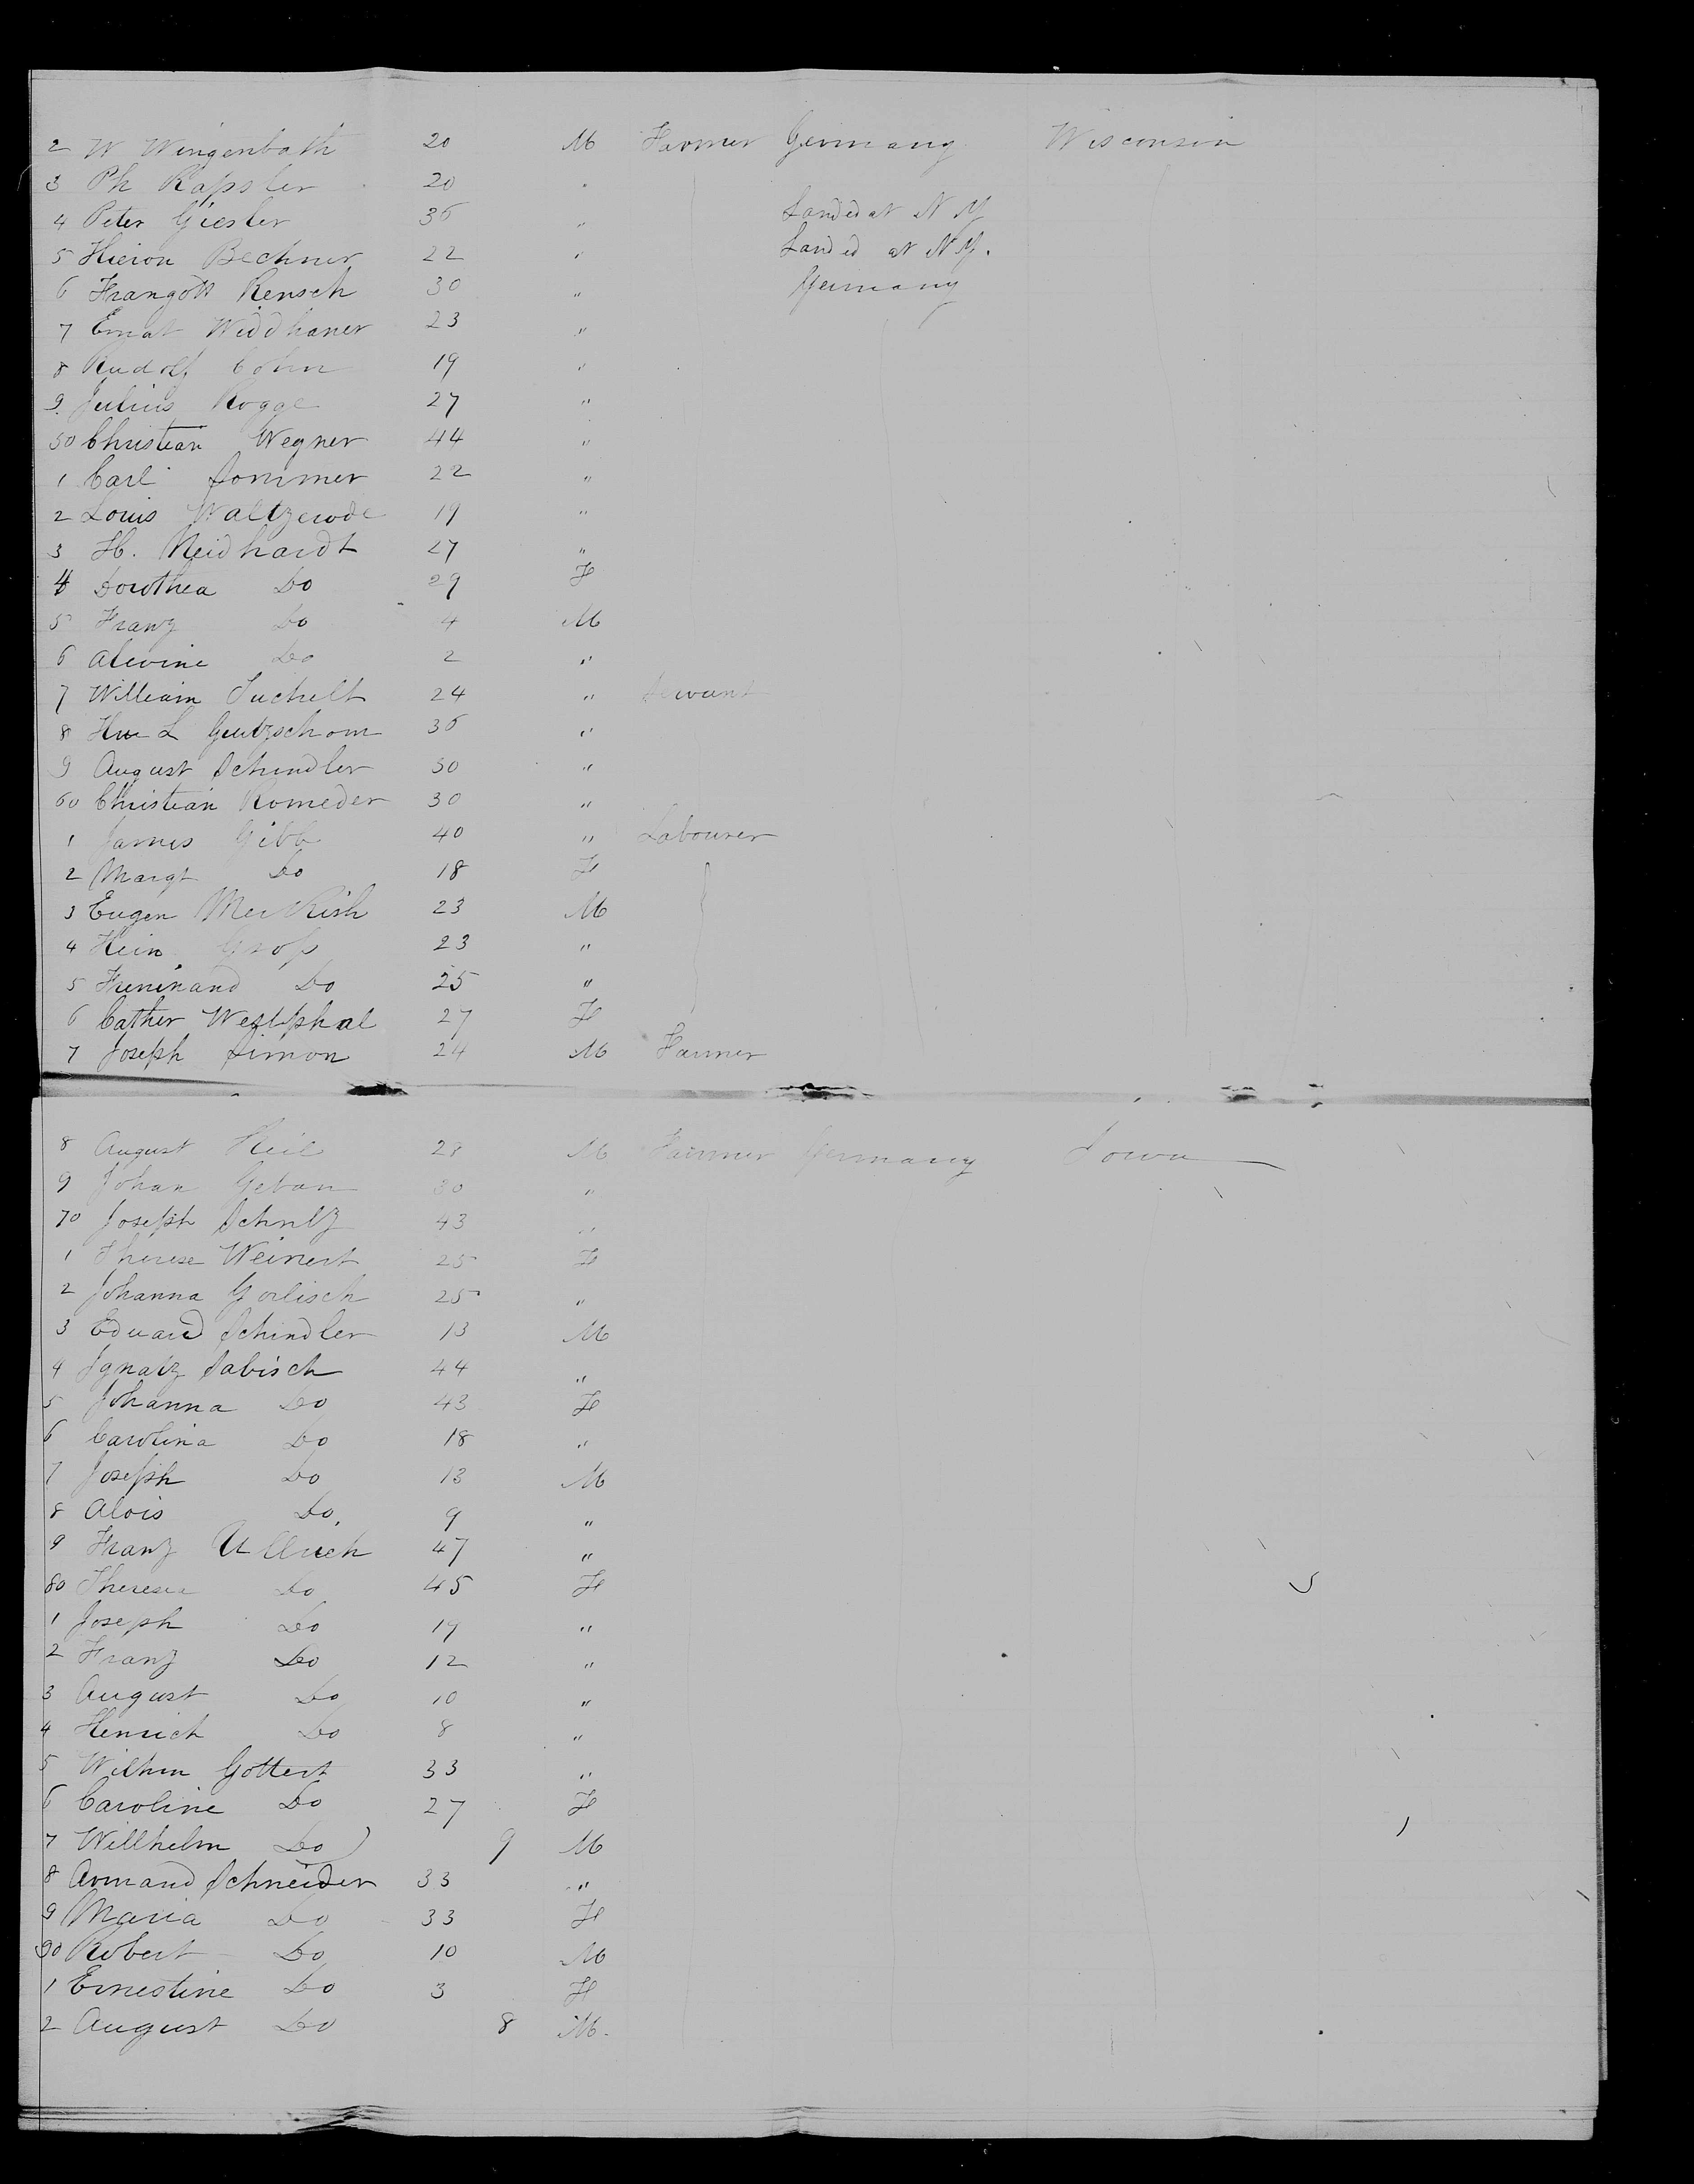 2 W Wingenbath 20 M Farmer Germany Wisconsin
3 Ph Kapsler 20 "
4 Peter Giesler 36 " Landed at N Y
5 Hieron Bechner 22 " Landed at N Y.
6 Frangott Rensch 30 " Germany
7 Ernat Widdhaner 23 "
8 Rudolf Cohn 19 "
9 Julius Rogge 27 "
50 Christian Wegner 44 "
1 Carl Sommer 22 "
2 Louis Waltzerode 19 "
3 H. Neidhardt 27 "
4 Dorothea Do 29 F
5 Franz Do 4 M
6 Alevine Do 2 "
7 William Suchelt 24 " Servant
8 L Gentzschom 36 "
9 August Schindler 30 "
60 Christian Romeder 30 "
1 James Gibb 40 " Labourer
2 Margt Do 18 F
3 Eugen 23 M
4 Hein Groß 23 "
5 Freninand Do 25 "
6 Cather Westphal 27 F
7 Joseph Simon 24 M Farmer
8 August Heil 28 M Farmer Germany Iowa
9 Johan Geban 30 "
70 Joseph Schulz 43 "
1 Therese Weinert 25 F
2 Johanna Gorlisch 25 "
3 Eduard Schindler 13 M
4 Ignatz Sabisch 44 "
5 Johanna Do 43 F
6 Carolina Do 18 "
7 Joseph Do 13 M
8 Alois Do. 9 "
9 Franz Ullrich 47 "
80 Theresia Do 45 F
1 Joseph Do 19 "
2 Franz Do 12 "
3 August Do 10 "
4 Henrich Do 8 "
5 Wilhm Gottert 33 "
6 Caroline Do 27 F
7 Willhelm Do 9 M
8 Armand Schneider 33 "
9 Maria Do 33 F
90 Robert Do 10 M
1 Ernestine Do 3 F
2 August Do 8 M.